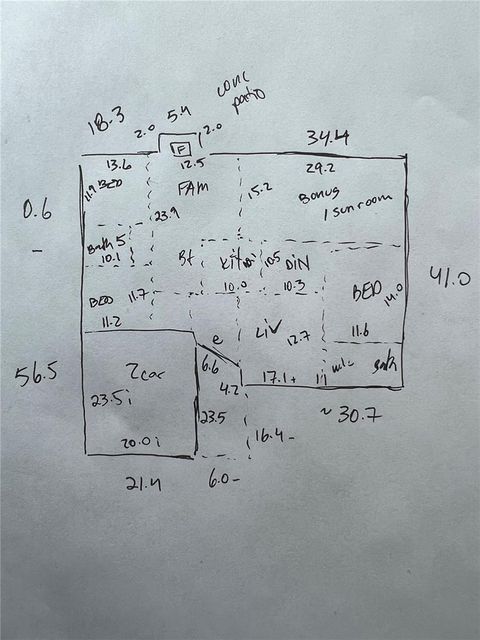 conc
patio
18-3
5.4
2.0
2.0
F
34.4
13.6
12.5
29.2
11.9 BED
FAM
15.2
Bonus
/ sunroom
0.6
-
23.9
Bath 5
10.1
Bt
Kit
10.5
DiN
BED
14.0
41.0
BED
11.7
10.0
10.3
11.2
e
Liv
12.7
11.6
56.5
2 car
6.6
4.2
17.1+
11
wic
23.5 i
23.5
~ 30.7
20.0 i
16.4-
21.4
6.0-